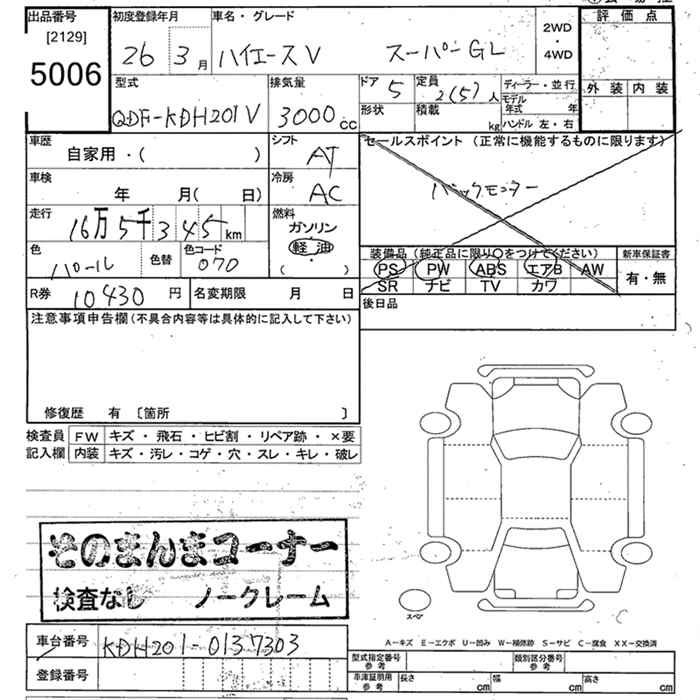 出品番号
[2129]
5006
初度登録年月
26 3月
車名・グレード
ハイエースV スーパーGL
2WD
・
4WD
評価点
外装 内装
型式
QDF-KDH201V
排気量
3000cc
ドア 5
形状
定員 2(5)人
積載 kg
ディーラー・並行
モデル年式 年
ハンドル 左・右
車歴
自家用・( )
シフト
AT
車検
年 月( 日)
冷房
AC
走行
16万5千345km
燃料
ガソリン
軽油
・
( )
色
パール
色替
色コード
070
R券 10430円
名変期限 月 日
セールスポイント (正常に機能するものに限ります)
バックモニター
装備品 (純正品に限り○をつけてください)
PS PW ABS エアB AW
SR ナビ TV カワ
新車保証書
有・無
後日品
注意事項申告欄(不具合内容等は具体的に記入して下さい)
修復歴 有 〔箇所 〕
検査員記入欄
FW キズ・飛石・ヒビ割・リペア跡・×要
内装 キズ・汚レ・コゲ・穴・スレ・キレ・破レ
そのまんまコーナー
検査なし ノークレーム
スペア
A-キズ E-エクボ U-凹み W-補修跡 S-サビ C-腐食 XX-交換済
車台番号 KDH201-0137303
登録番号
型式指定番号参考
類別区分番号参考
車庫証明用参考 長さ cm 幅 cm 高さ cm